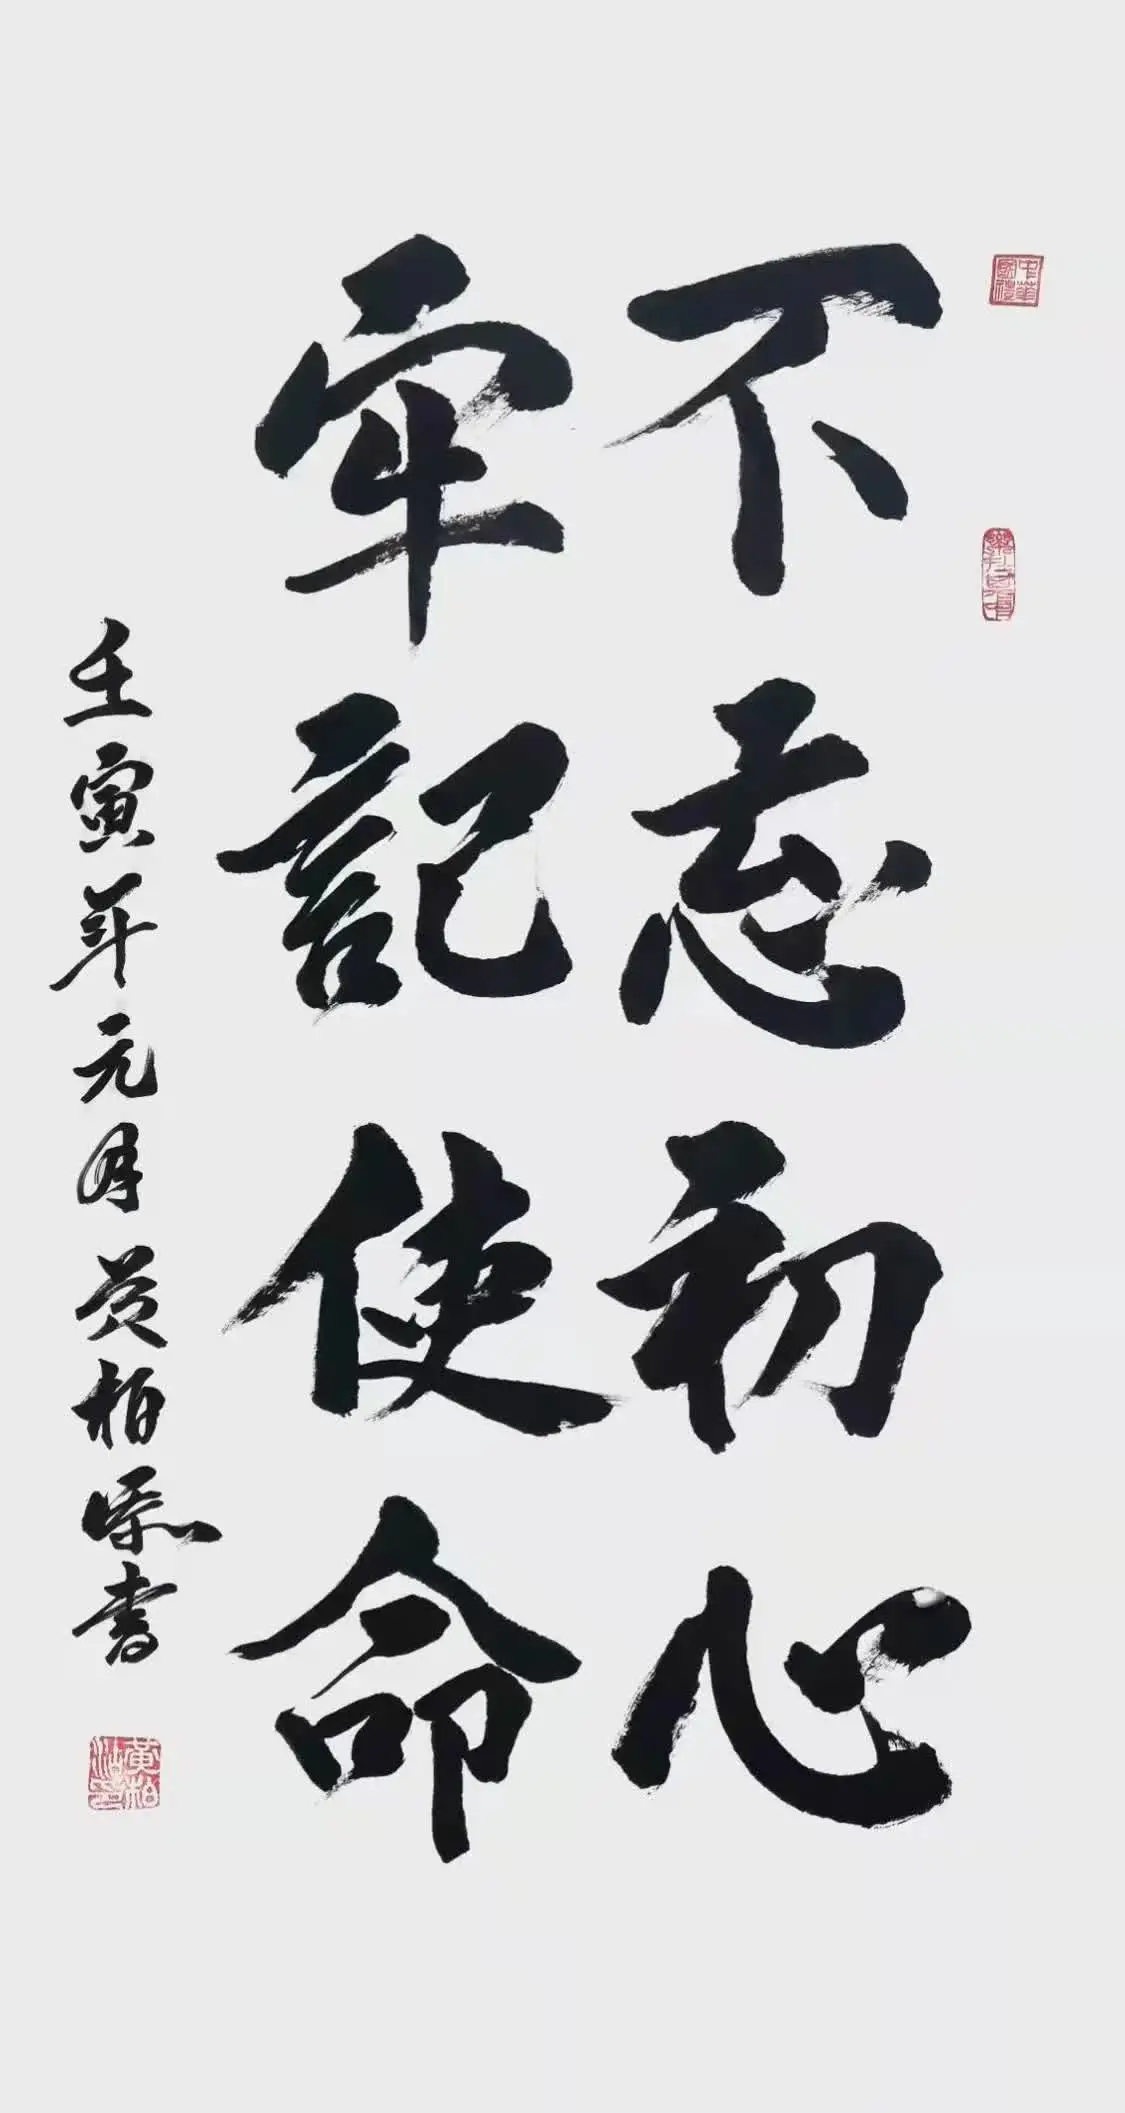 不忘初心
牢記使命
壬寅年元月黄柏添書